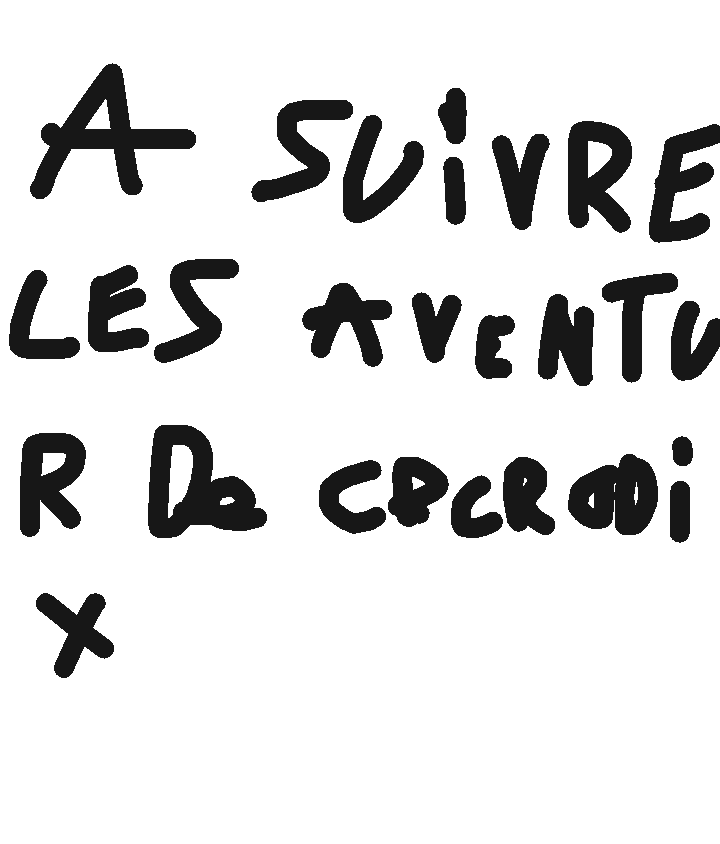 A SUiVRE
LES AVENTU
R De
x